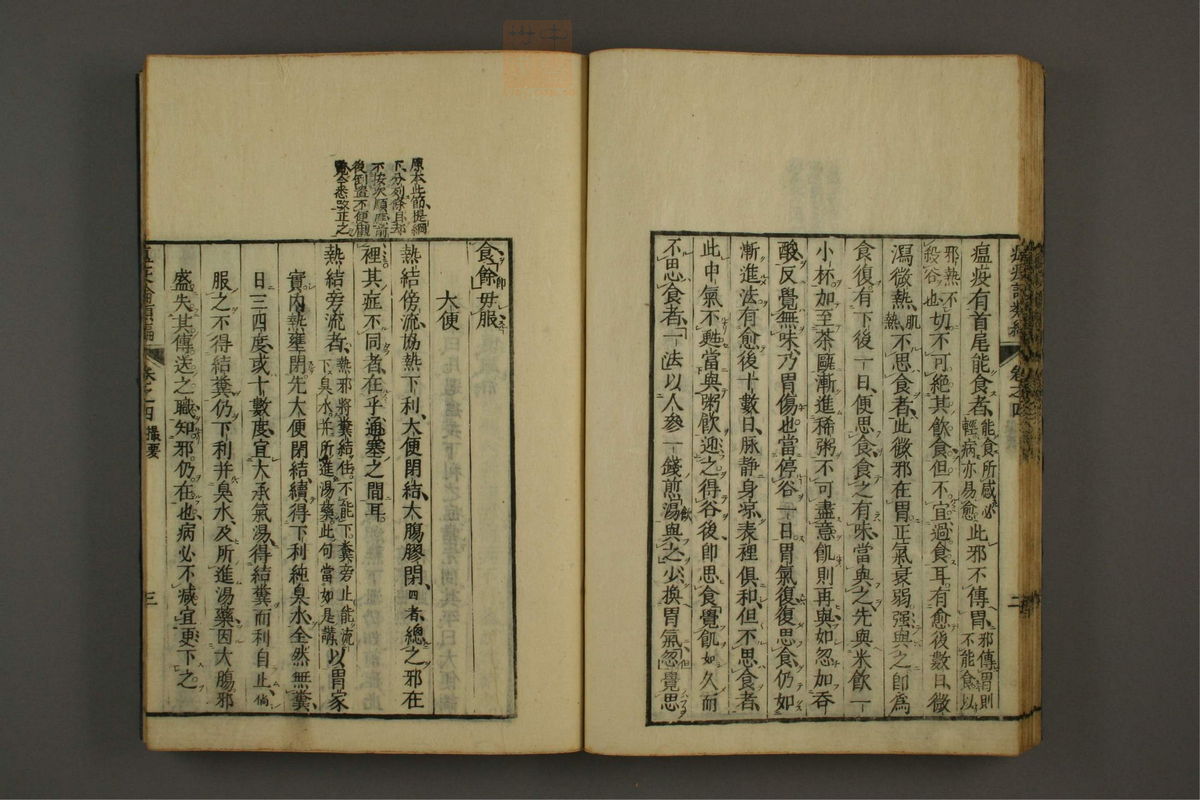 瘟疫有首尾能食者能食所感必輕病亦易愈此邪不傳胃邪傳胃則不能食以
邪熱不殺谷也切不可絶其飲食但不宜過食耳有愈後數日微
渴微熱肌熱不思食者此微邪在胃正氣衰弱强與之即爲
食復有下後一日便思食食之有味當與之先與米飲一
小杯加至茶甌漸進稀粥不可盡意飢則再與如忽加吞
酸反覺無味乃胃傷也當停谷一日胃氣復復思食仍如
漸進法有愈後十數日脉静身凉表裡俱和但不思食者
此中氣不甦當與粥飲迎之得谷後即思食覺飢如久而
不思食者一法以人參一錢煎湯與之少換胃氣忽覺思
瘟疫論類編
卷之四
二
原本此節提綱
下分列條目却
不按次順應前
後倒置不便觀
覽今悉改正之
食餘毋服
大便
熱結傍流協熱下利大便閉結大腸膠閉四者總之邪在
裡其症不同者在乎通塞之間耳
熱結旁流者熱邪將糞結住不能下糞旁止能流下臭水并所進湯藥此句當如是講以胃家
實内熱壅閉先大便閉結續得下利純臭水全然無糞
日三四度或十數度宜大承氣湯得結糞而利自止倘
服之不得結糞仍下利并臭水及所進湯藥因大腸邪
盛失其傳送之職知邪仍在也病必不减宜更下之
卷之四 撮要
三